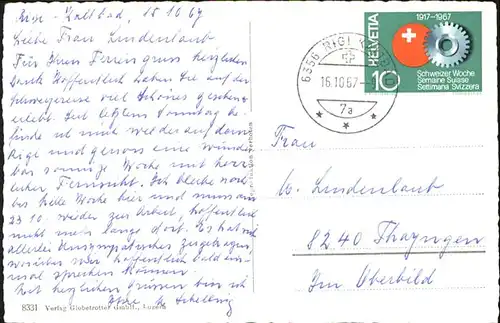 Rigi-Kaltbad, 15.10.67
Liebe Frau Lindenlaub
Für Ihren Feriengruss herzlichen
Dank. Hoffentlich haben Sie auf der
viel Schönes gesehen
erlebt. Seit letztem Sonntag be-
finde ich mich wieder auf dem
Rigi und genoss eine wunder-
bar sonnige Woche mit herr-
licher Fernsicht. Ich bleibe noch
bis Woche hier und muss am
23.10. wieder zur Arbeit, hoffentlich
nicht mehr lange dort. Es hat sich
allerlei Unsympatisches zugetragen,
worüber wir hoffentlich bald ein-
mal sprechen können.
Mit herzlichen Grüssen bin ich
Ihre
8331 Verlag Globetrotter GmbH., Luzern
6356 RIGI
16.10.67
7a
HELVETIA
1917-1967
10
Schweizer Woche
Semaine Suisse
Settimana Svizzera
Frau
Lindenlaub
8240 Thayngen
Im Oberbild